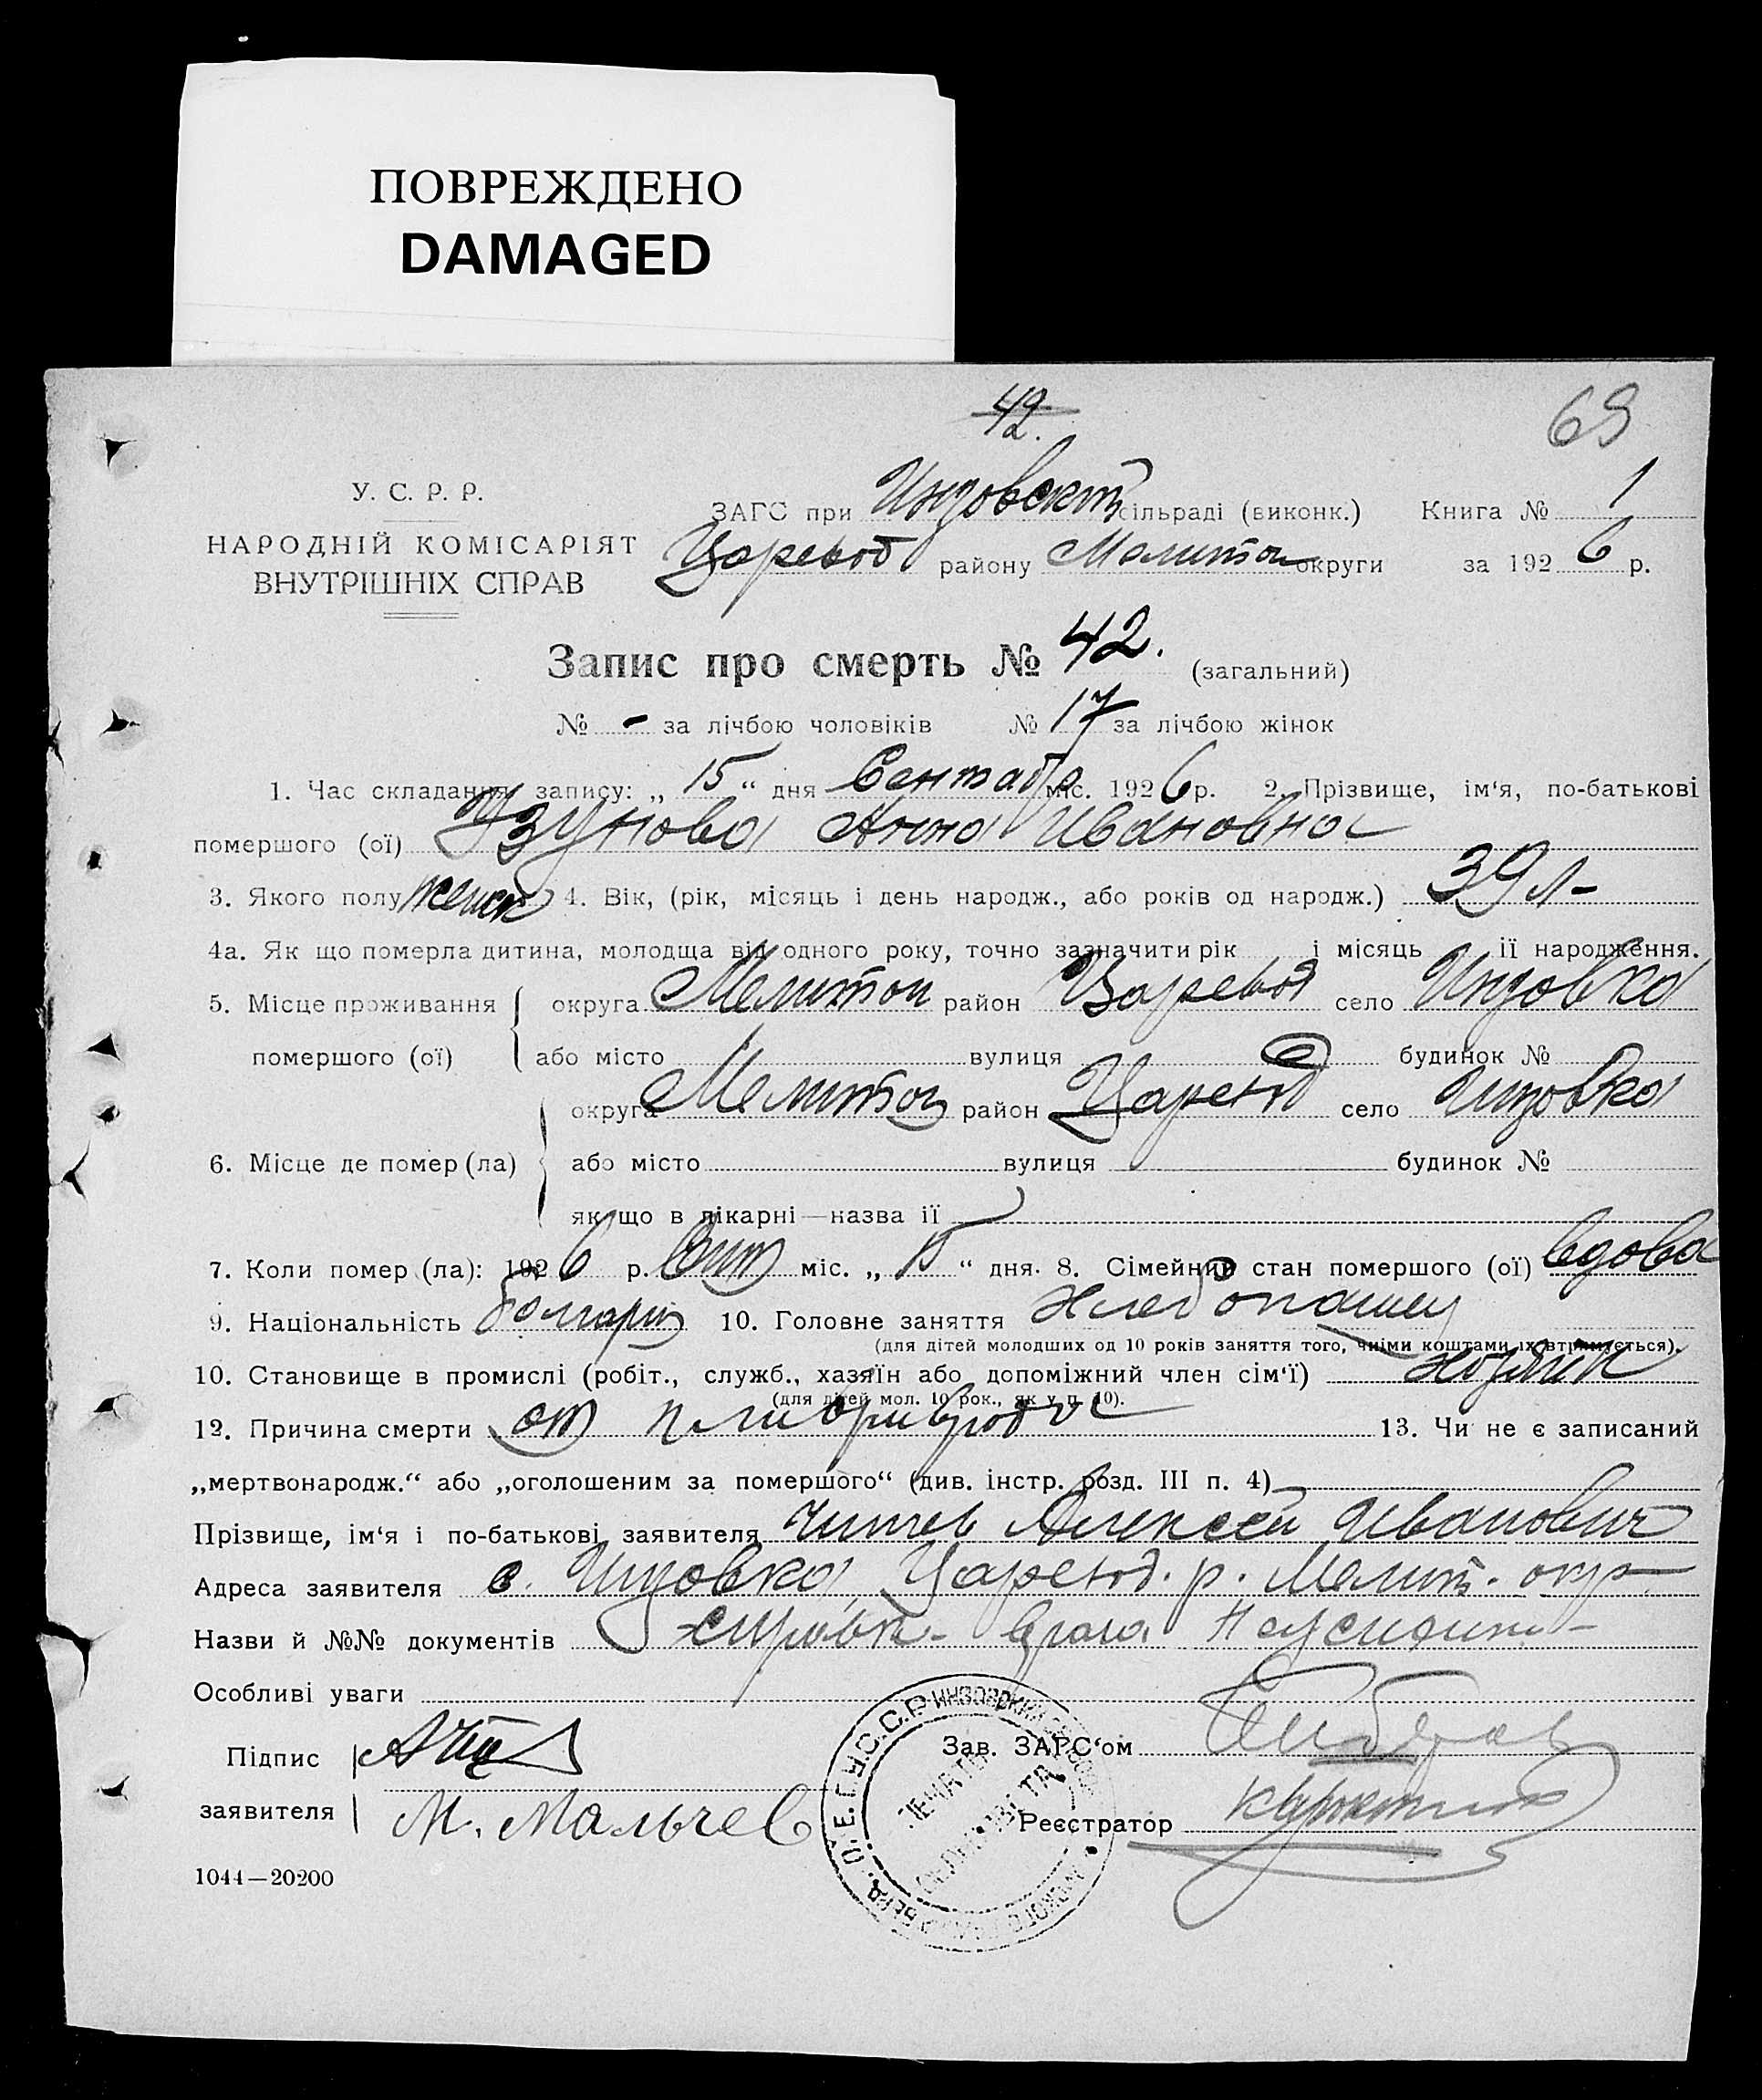 ПОВРЕЖДЕНО
DAMAGED
42.
69
У. С. Р. Р.
НАРОДНІЙ КОМІСАРІЯТ
ВНУТРІШНІХ СПРАВ
ЗАГС при Инзовск сільраді (виконк.) Книга № 1
Царевод району Мелитоп округи за 1926 р.
Запис про смерть № 42. (загальний)
№ - за лічбою чоловіків № 17 за лічбою жінок
1. Час складання запису: „ 15 “ дня Сентяб міс. 1926 р. 2. Прізвище, ім‘я, по-батькові
помершого (ої) Узунова Анна Ивановна
3. Якого полу женск 4. Вік, (рік, місяць і день народж., або років од народж.) 39 л-
4а. Як що померла дитина, молодща від одного року, точно зазначити рік і місяць її народження.
5. Місце проживання помершого (ої) округа Мелитоп район Царевод село Инзовка
або місто вулиця будинок №
6. Місце де помер (ла) округа Мелитоп район Царевод село Инзовка
або місто вулиця будинок №
як що в лікарні—назва її
7. Коли помер (ла): 1926 р. міс. „ 15 “ дня. 8. Сімейний стан помершого (ої) вдова
9. Національність болгарк 10. Головне заняття Хлебопашец
(для дітей молодших од 10 років заняття того, чиїми коштами їх втримується).
10. Становище в промислі (робіт., служб., хазяїн або допоміжний член сім‘ї)
(для дітей мол. 10 рок., як у п. 10).
12. Причина смерти от 13. Чи не є записаний
„мертвонародж.“ або „оголошеним за помершого“ (див. інстр. розд. III п. 4)
Прізвище, ім‘я і по-батькові заявителя Алексей Иванович
Адреса заявителя с. Инзовка, Царевод. р. Мелит. окр
Назви й №№ документів справк- врача
Особливі уваги
Підпис заявителя
М. Мальчев
Зав. ЗАГС‘ом
Реєстратор
У.С.С.Р.
ПЕЧАТЬ
1044—20200